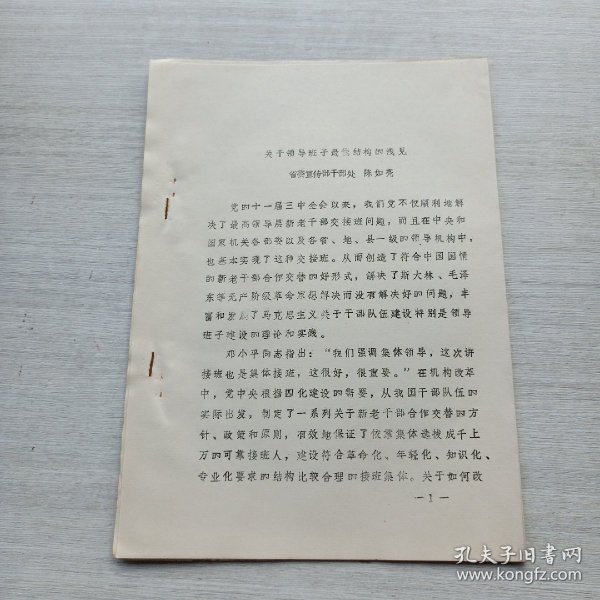 关于领导班子最佳结构的浅见
省委宣传部干部处 陈如亮
党的十一届三中全会以来，我们党不仅顺利地解
决了最高领导层新老干部交接班问题，而且在中央和
国家机关各部委以及各省、地、县一级的领导机构中，
也基本实现了这种交接班。从而创造了符合中国国情
的新老干部合作交替的好形式，解决了斯大林、毛泽
东等无产阶级革命家想解决而没有解决好的问题，丰
富和发展了马克思主义关于干部队伍建设特别是领导
班子建设的理论和实践。
邓小平同志指出：“我们强调集体领导，这次讲
接班也是集体接班，这很好，很重要。”在机构改革
中，党中央根据四化建设的需要，从我国干部队伍的
实际出发，制定了一系列关于新老干部合作交替的方
针、政策和原则，有效地保证了依靠集体选拔成千上
万的可靠接班人，建设符合革命化、年轻化、知识化、
专业化要求的结构比较合理的接班集体。关于如何改
—1—
孔夫子旧书网
www.kongfz.com